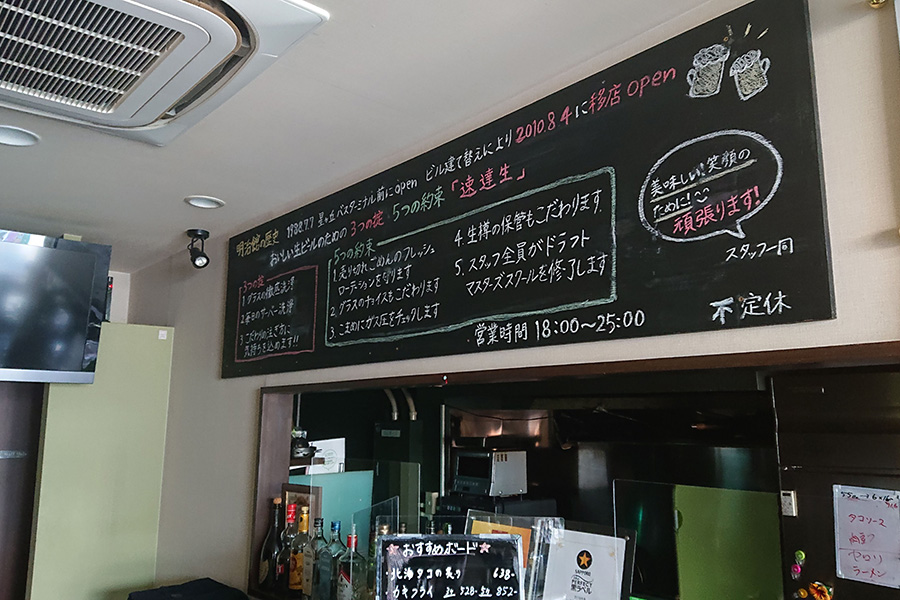 明治館の歴史 1988.7.7 星ヶ丘バスターミナル前にopen ビル建て替えにより2010.8 4に移店open
おいしい生ビールのための3つの掟・5つの約束「速達生」
3つの掟
1 グラスの徹底洗浄
2 毎日のサーバー洗浄
3 こだわりの注ぎ方に
気持ちを込めます!!
5つの約束
1. 売り切れごめんのフレッシュ
ローテーションを守ります
2. グラスのチョイスもこだわります
3. こまめにガス圧をチェックします
4. 生樽の保管もこだわります
5. スタッフ全員がドラフト
マスターズスクールを修了します
美味しい!笑顔の
ために!
頑張ります!
スタッフ一同
営業時間 18:00〜25:00
不定休
おすすめボード
・北海タコの炙り 638-
・カキフライ 528- 852-
SAPPORO
PERFECT
黒ラベル
タコソース
セロリ
ラーメン